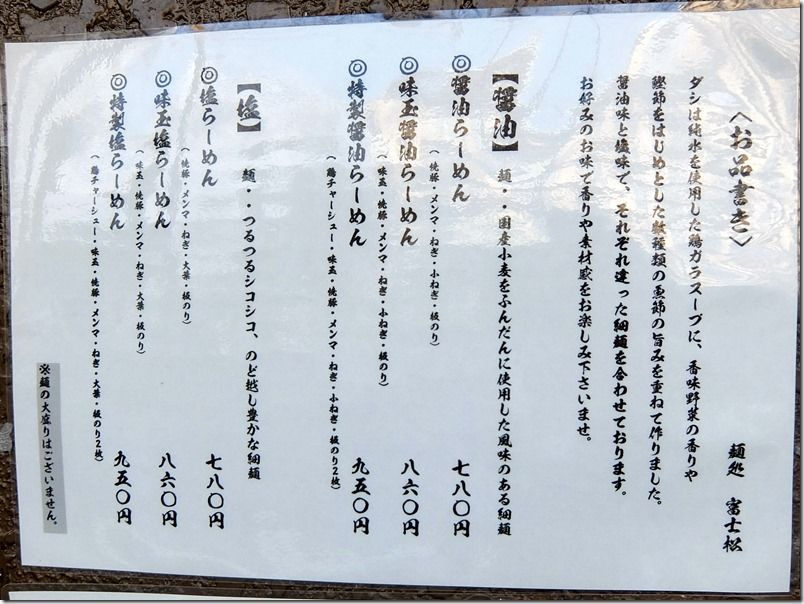 〈お品書き〉
麺処 富士松
ダシは純水を使用した鶏ガラスープに、香味野菜の香りや
鰹節をはじめとした数種類の魚節の旨みを重ねて作りました。
醤油味と塩味で、それぞれ違った細麺を合わせております。
お好みのお味で香りや素材感をお楽しみ下さいませ。
【醤油】 麺・・国産小麦をふんだんに使用した風味のある細麺
◎醤油らーめん 七八〇円
(焼豚・メンマ・ねぎ・小ねぎ・板のり)
◎味玉醤油らーめん 八六〇円
(味玉・焼豚・メンマ・ねぎ・小ねぎ・板のり)
◎特製醤油らーめん 九五〇円
(鶏チャーシュー・味玉・焼豚・メンマ・ねぎ・小ねぎ・板のり2枚)
【塩】 麺・・つるつるシコシコ、のど越し豊かな細麺
◎塩らーめん 七八〇円
(焼豚・メンマ・ねぎ・大葉・板のり)
◎味玉塩らーめん 八六〇円
(味玉・焼豚・メンマ・ねぎ・大葉・板のり)
◎特製塩らーめん 九五〇円
(鶏チャーシュー・味玉・焼豚・メンマ・ねぎ・大葉・板のり2枚)
※麺の大盛りはございません。